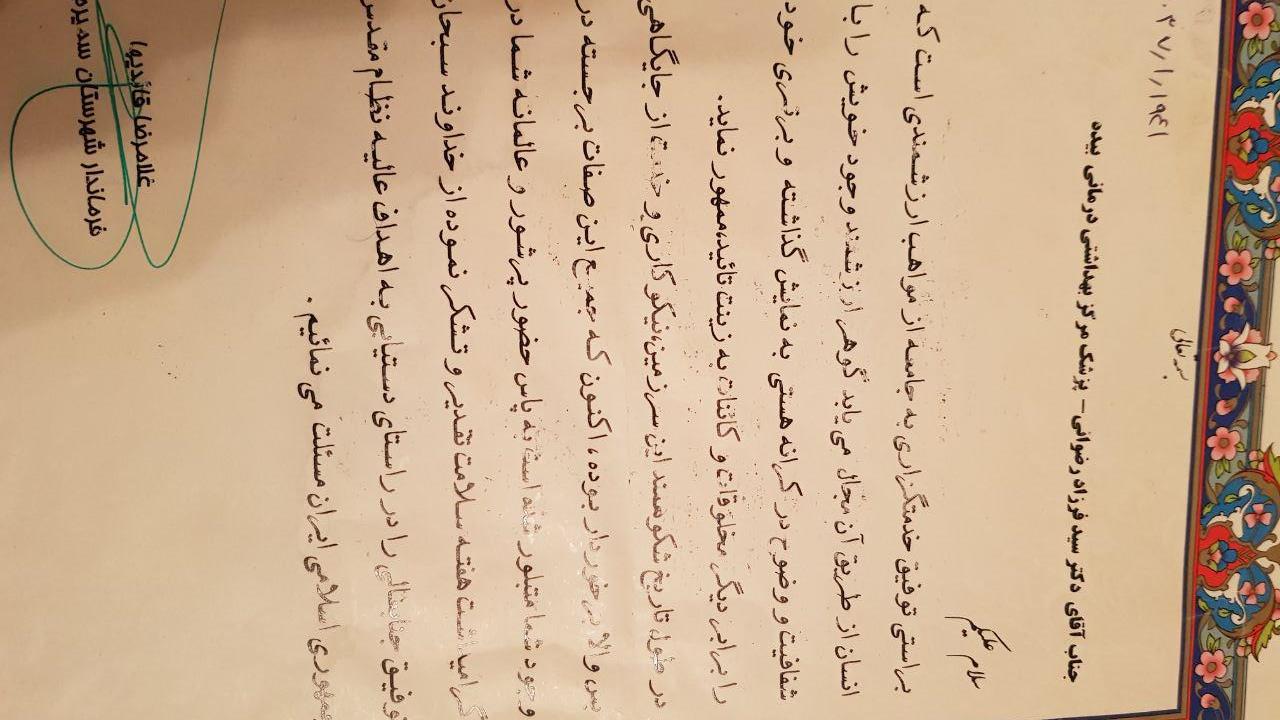 بسمه تعالی
جناب آقای دکتر سید فرزاد رضوانی – پزشک مرکز بهداشتی درمانی بیده
سلام علیکم
براستی توفیق خدمتگزاری به جامعه از مواهب ارزشمندی است که
انسان از طریق آن مجال می یابد گوهر ارزشمند وجود خویش را با
شفافیت و وضوح در کرانه هستی به نمایش گذاشته و برتری خود
را برابر دیگر مخلوقات و کائنات به زینت تائید، ممهور نماید.
در طول تاریخ شکوهمند این سرزمین، نیکوکاری و خدمت از جایگاهی
بس والا برخوردار بوده، اکنون که جمیع این صفات برجسته در
وجود شما متبلور شده است به پاس حضور پرشور و عالمانه شما در
گرامیداشت هفته سلامت تقدیر و تشکر نموده از خداوند سبحان
توفیق جنابعالی را در راستای دستیابی به اهداف عالیه نظام مقدس
جمهوری اسلامی ایران مسئلت می نمائیم.
غلامرضا قائدیها
فرماندار شهرستان سمیرم